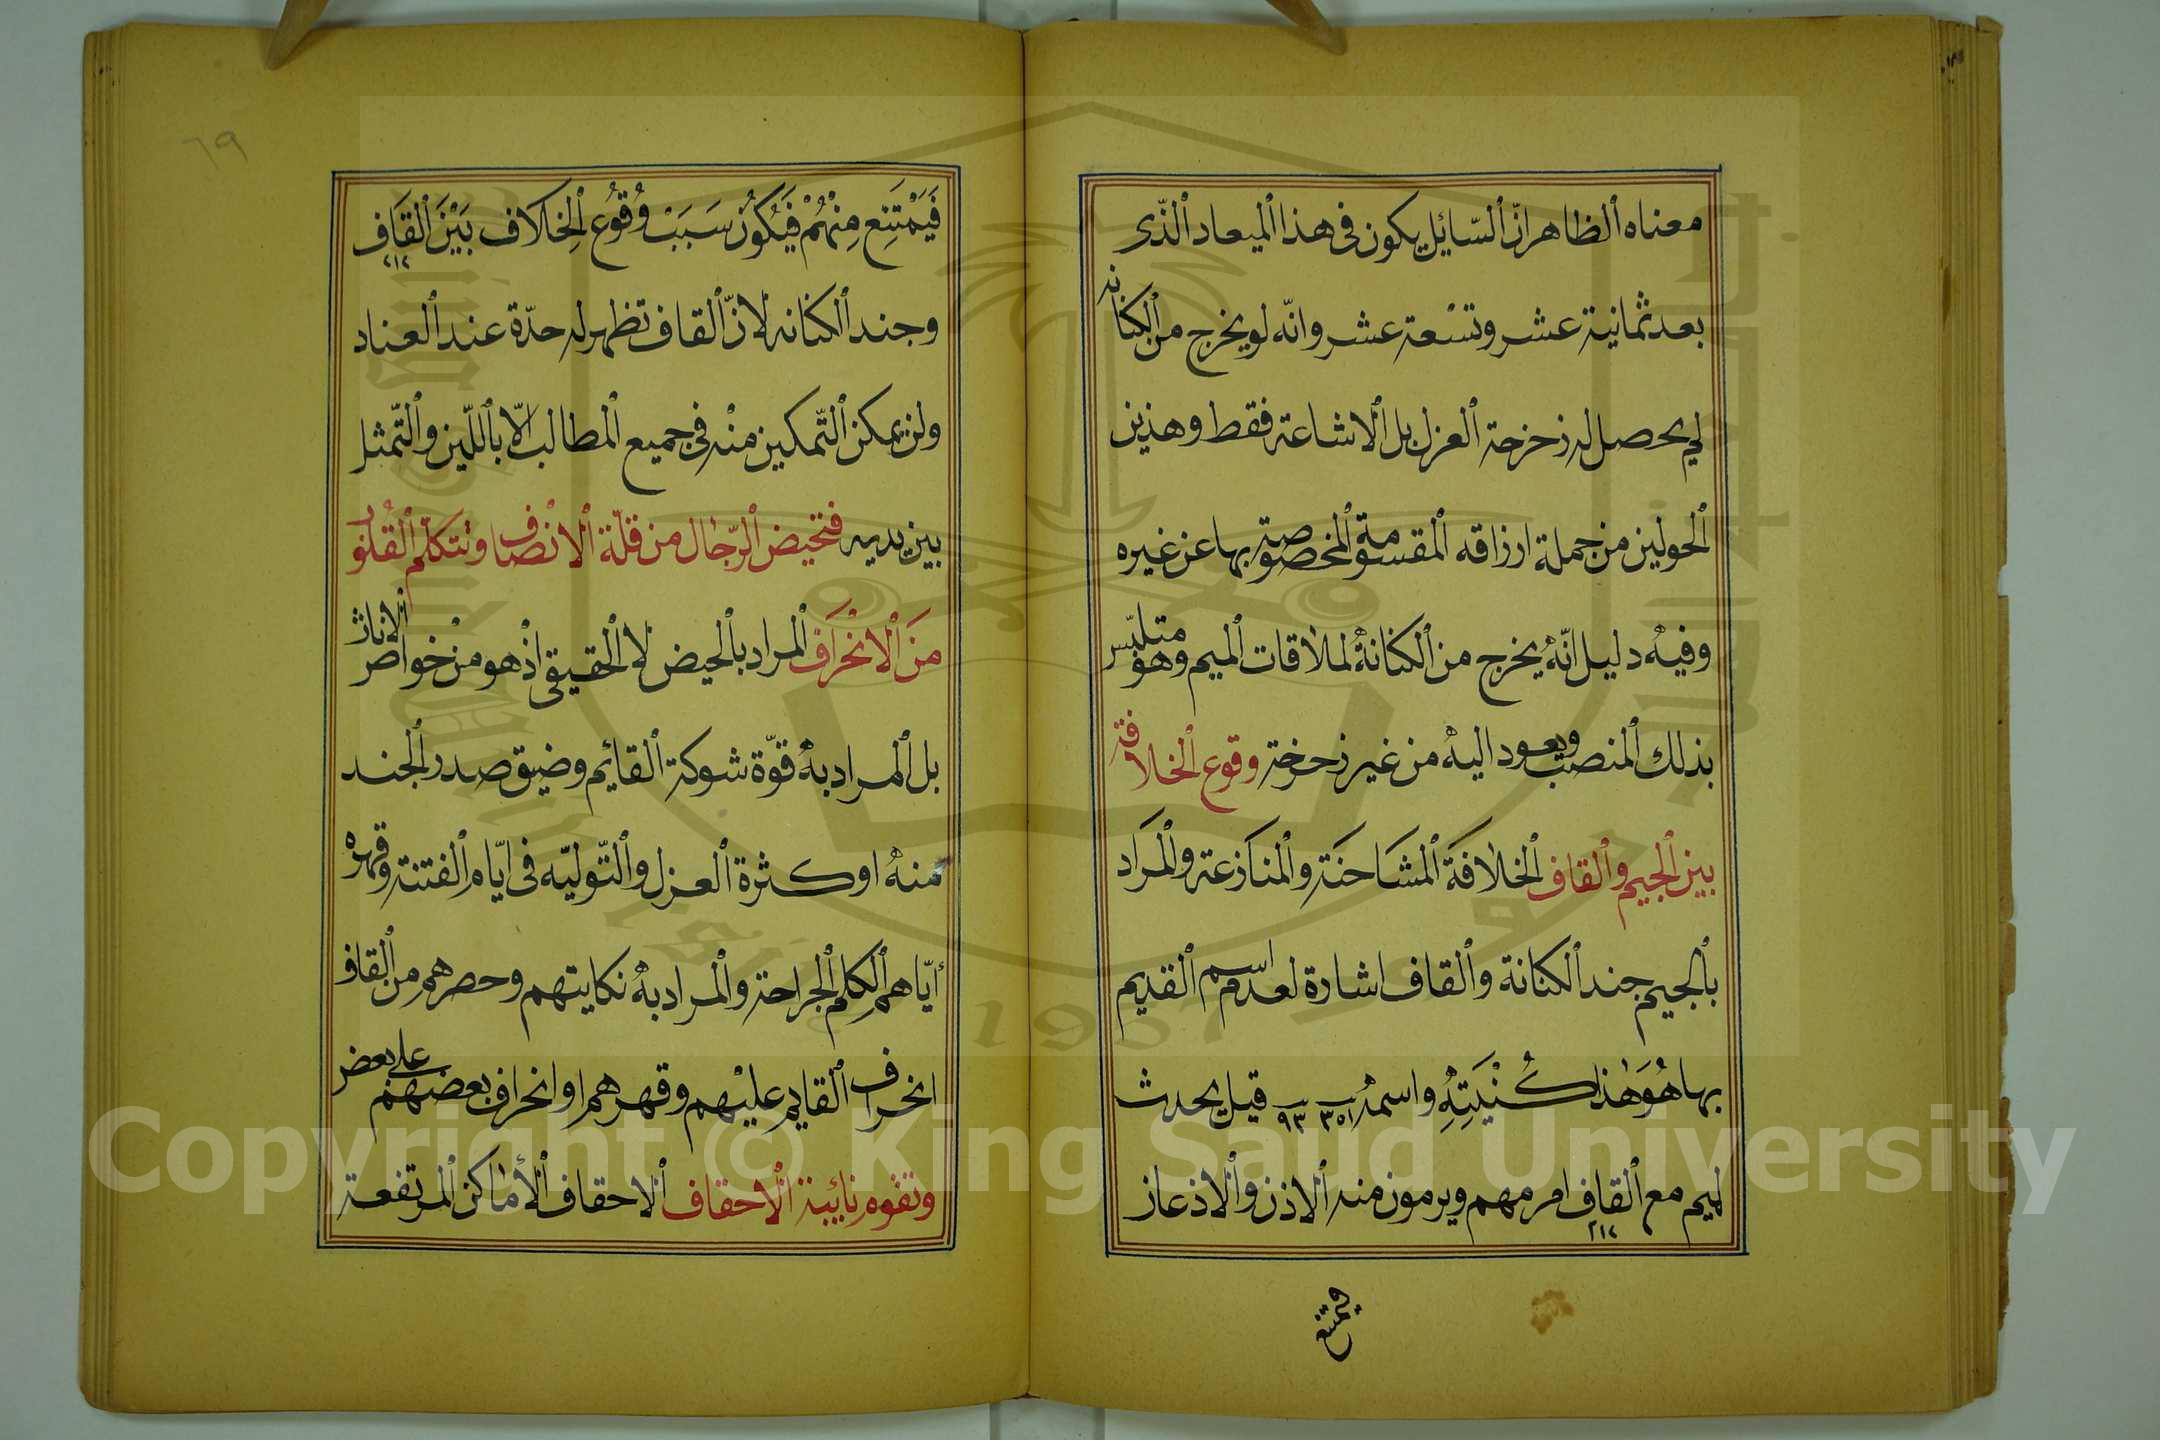 معناه الظاهر انّ السّائل يكون فى هذا الميعاد الذّى
بعد ثمانية عشر وتسْعة عشر وانّه لو يخرج من الكنانه
لم يحصل له زحزحة العزل بل الاشاعة فقط وهذين
الحولين من جملة ارزاقه المقسومة المخصوصة بها عن غيره
وفيهْ دليل انّهُ يخرج من الكنانهُ لملاقات الميم وهو متلبّس
بذلك المنصب ويعود اليهْ من غير زحزخة وقوع الخلافة
بين الجيم والقاف الخلافَة المشَاحنَة والمنَازعة والمرَاد
بالجيم جند الكنانة والقاف اشارة لعدم اسم القديم
بها هُوَ هٰذا كُنْيَتِهِْ واسمهْ ٣٥١ ٩٣ قيل يحدث
لميم مع القاف امر مهم ويرمون منه الاذن والاذعان
٢١٢
فيمتنع
٦٩
فَيَمْتَنِع مِنْهُمْ فَيَكُونُ سَبَبْ وُقُوُع الِخلاف بَيْنَ القَاف
٢١٢
وجند الكنانه لانّ القاف تظهر له حدّة عند العناد
ولن يمكن التّمكين منْه فى جميع المطالب الّا باللّين والتّمثل
بين يديه فتحيض الرّجال من قلّة الانْصاف وتتكلم القُلوب
مَن الانْحرَاف المراد بالحيض لا الحقيقى اذْ هو منْ خواص الاناث
بل المراد بهْ قوّة شوكة القائم وضيق صدر الجند
منهْ او كثرة العزل والتّوليّه فى ايّام الفتنة وقهره
أيّاهم الكلم الجراحة والمراد بهْ نكايتهم وحصرهم من القاف
انحراف القادم عليْهم وقهرهم او انحراف بعضهم على بعض
وتفوه نائبة الاحقاف الاحقاف الأماكن المرتفعة
Copyright © King Saud University
1957